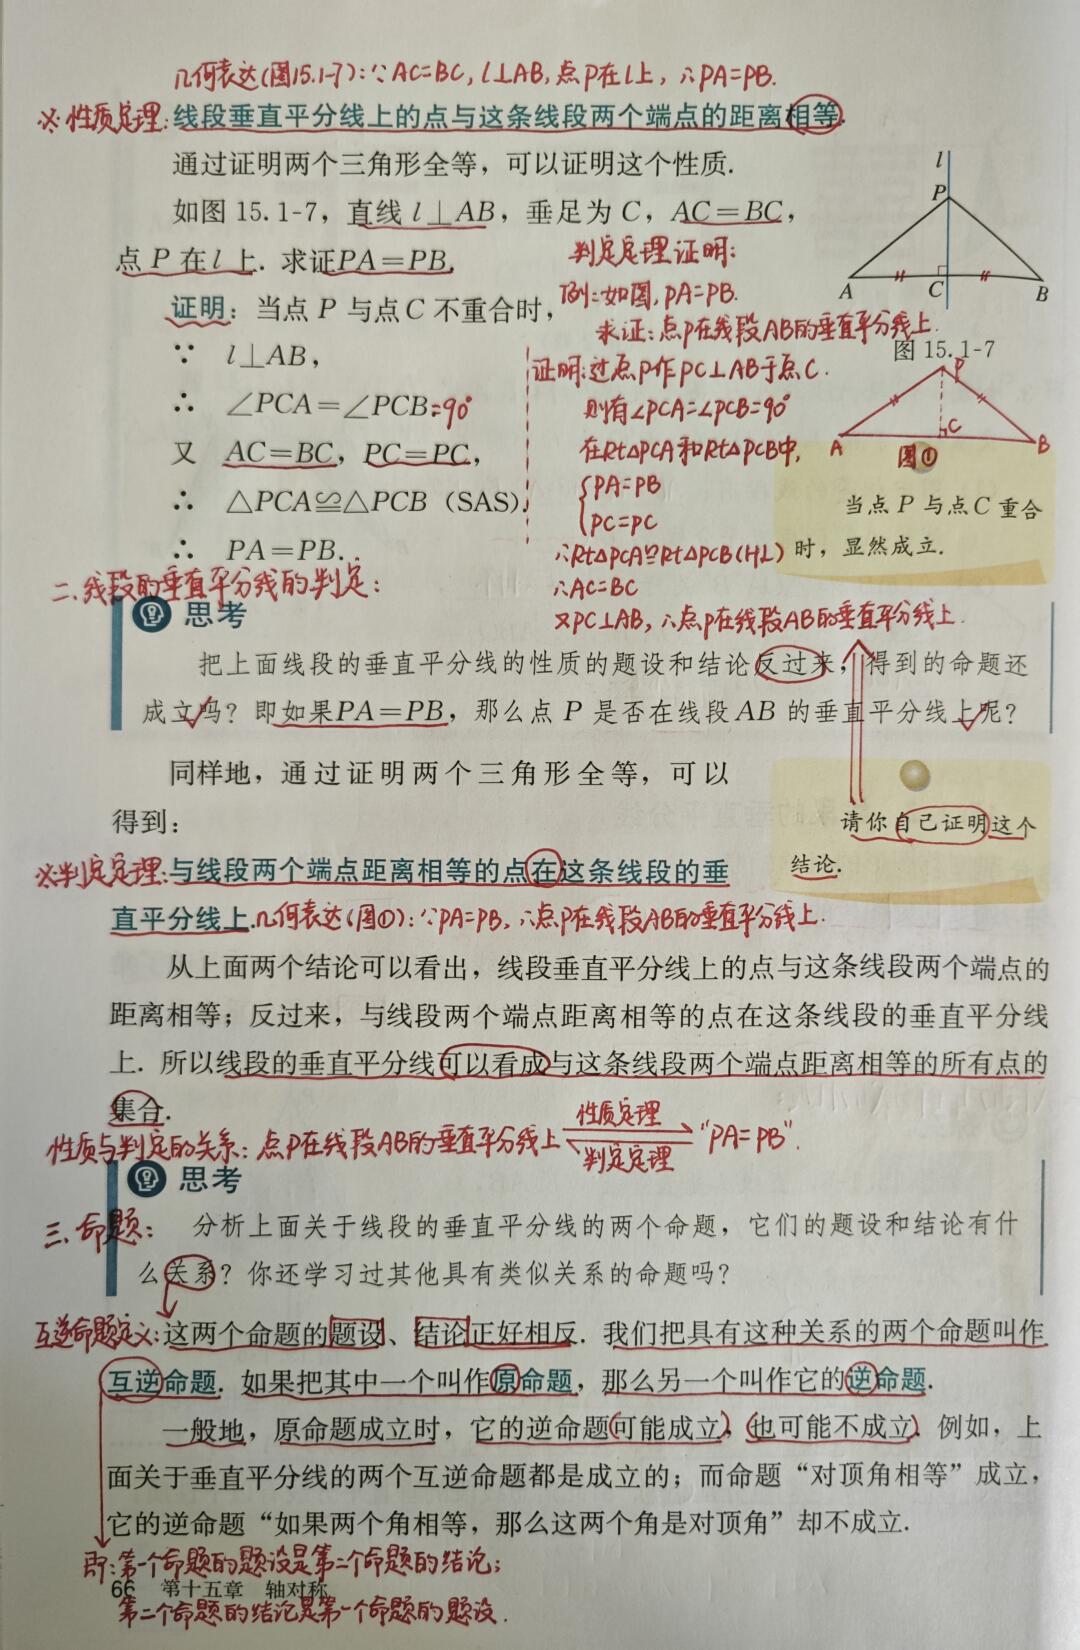 几何表达(图15.1-7)：∵AC=BC，l⊥AB，点P在l上，∴PA=PB.
※性质定理：线段垂直平分线上的点与这条线段两个端点的距离相等.
通过证明两个三角形全等，可以证明这个性质.
如图 15.1-7，直线 l⊥AB，垂足为 C，AC=BC，
点 P 在 l 上. 求证PA=PB.
证明：当点 P 与点C 不重合时，
∵ l⊥AB，
∴ ∠PCA=∠PCB=90°
又 AC=BC，PC=PC，
∴ △PCA≌△PCB (SAS).
∴ PA=PB.
判定定理证明：
例：如图，PA=PB.
求证：点P在线段AB的垂直平分线上.
证明：过点P作PC⊥AB于点C.
则有∠PCA=∠PCB=90°
在Rt△PCA和Rt△PCB中，
{PA=PB
PC=PC
∴Rt△PCA≌Rt△PCB(HL)
∴AC=BC
又PC⊥AB，∴点P在线段AB的垂直平分线上.
l
P
A C B
图 15.1-7
P
A C B
图①
当点 P 与点C 重合
时，显然成立.
二、线段的垂直平分线的判定：
思考
把上面线段的垂直平分线的性质的题设和结论反过来，得到的命题还
成立吗？即如果PA=PB，那么点 P 是否在线段 AB 的垂直平分线上呢？
同样地，通过证明两个三角形全等，可以
得到：
请你自己证明这个
结论.
※判定定理：与线段两个端点距离相等的点在这条线段的垂
直平分线上.几何表达(图①)：∵PA=PB，∴点P在线段AB的垂直平分线上.
从上面两个结论可以看出，线段垂直平分线上的点与这条线段两个端点的
距离相等；反过来，与线段两个端点距离相等的点在这条线段的垂直平分线
上. 所以线段的垂直平分线可以看成与这条线段两个端点距离相等的所有点的
集合.
性质与判定的关系：点P在线段AB的垂直平分线上 性质定理 判定定理 “PA=PB”.
思考
三、命题：分析上面关于线段的垂直平分线的两个命题，它们的题设和结论有什
么关系？你还学习过其他具有类似关系的命题吗？
互逆命题定义：这两个命题的题设、结论正好相反. 我们把具有这种关系的两个命题叫作
互逆命题. 如果把其中一个叫作原命题，那么另一个叫作它的逆命题.
一般地，原命题成立时，它的逆命题可能成立，也可能不成立. 例如，上
面关于垂直平分线的两个互逆命题都是成立的；而命题“对顶角相等”成立，
它的逆命题“如果两个角相等，那么这两个角是对顶角”却不成立.
即：第一个命题的题设是第二个命题的结论；
66 第十五章 轴对称
第二个命题的结论是第一个命题的题设.